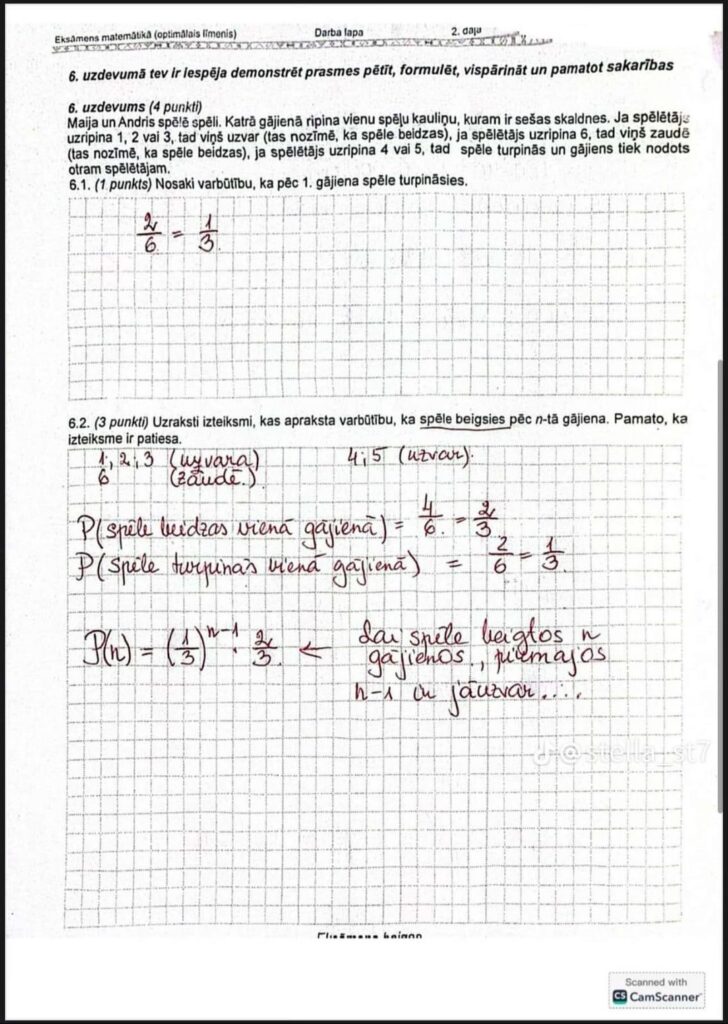 Eksāmens matemātikā (optimālais līmenis) Darba lapa 2. daļa
6. uzdevumā tev ir iespēja demonstrēt prasmes pētīt, formulēt, vispārināt un pamatot sakarības
6. uzdevums (4 punkti)
Maija un Andris spēlē spēli. Katrā gājienā ripina vienu spēļu kauliņu, kuram ir sešas skaldnes. Ja spēlētājs
uzripina 1, 2 vai 3, tad viņš uzvar (tas nozīmē, ka spēle beidzas), ja spēlētājs uzripina 6, tad viņš zaudē
(tas nozīmē, ka spēle beidzas), ja spēlētājs uzripina 4 vai 5, tad spēle turpinās un gājiens tiek nodots
otram spēlētājam.
6.1. (1 punkts) Nosaki varbūtību, ka pēc 1. gājiena spēle turpināsies.
2/6 = 1/3
6.2. (3 punkti) Uzraksti izteiksmi, kas apraksta varbūtību, ka spēle beigsies pēc n-tā gājiena. Pamato, ka
izteiksme ir patiesa.
1, 2, 3 (uzvara) 4; 5 (uzvar).
6 (zaudē.)
P(spēle beidzas vienā gājienā) = 4/6 = 2/3
P(spēle turpinās vienā gājienā) = 2/6 = 1/3
P(n) = (1/3)^n-1 · 2/3 ← Lai spēle beigtos n
gājienos,
n-1 ir jāuzvar....
@stella_st7
Scanned with
CS CamScanner